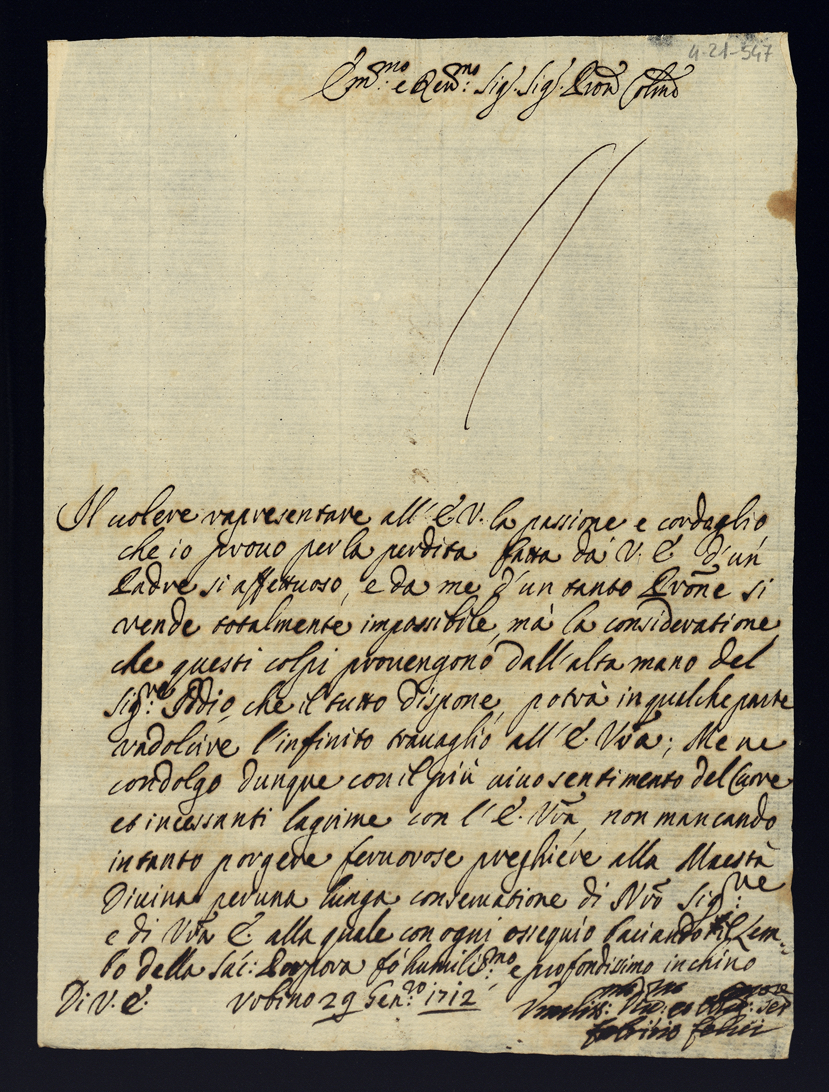 4-21-547
Em.mo e Rev.mo Sig.r Sig.r Pron Colmo
Il volere rapresentare all'E V. la passione e cordoglio
che io provo per la perdita fatta da V. E. d'un
Padre si affettuoso, e da me d'un tanto Prone si
rende totalmente impossibile, mà la consideratione
che questi colpi provengono dall'alta mano del
Sig.re Iddio, che il tutto dispone, potrà in qualche parte
radolcire l'infinito travaglio all'E. Vra; Me ne
condolgo dunque con il più vivo sentimento del Cuore
et incessanti lagrime con l'E. Vra non mancando
intanto porgere fervorose preghiere alla Maestà
Divina per una lunga conservatione di Nro Sig.re
e di Vra E. alla quale con ogni ossequio baciando il Lem-
bo della Sac: Porpora fò humiliss.mo e profondissimo inchino
Di V. E. Urbino 29 Gen.ro 1712
Umiliss.mo Dev.mo et Obl.mo Ser.
fabrizio felici